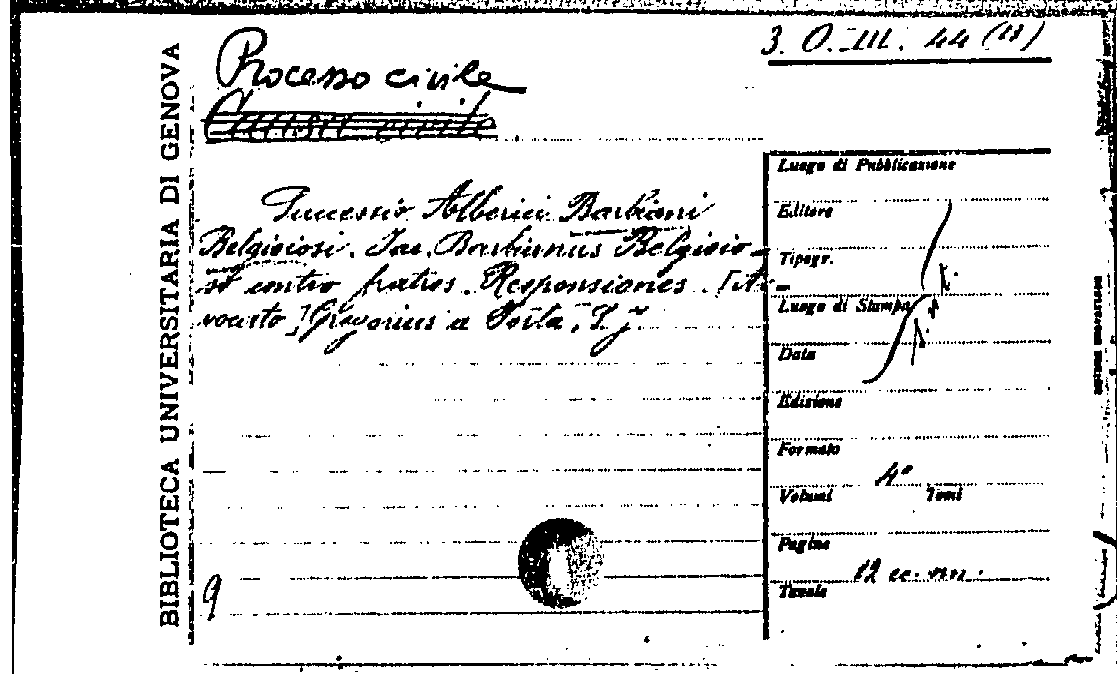 BIBLIOTECA UNIVERSITARIA DI GENOVA
3. O. III. 44 (13)
Processo civile
Causa civile
Successio Alberici Barbiani
Belgioiosi. Jac. Barbianus Belgioio-
si contro fratres. Responsiones. [Av-
vocato] Gregorius a Porta, S. J.
Luogo di Pubblicazione
Editore
Tipogr.
Luogo di Stampa
Data
Edizione
Formato
4°
Volumi Tomi
Pagine
12 cc. nn.
Tavole
9